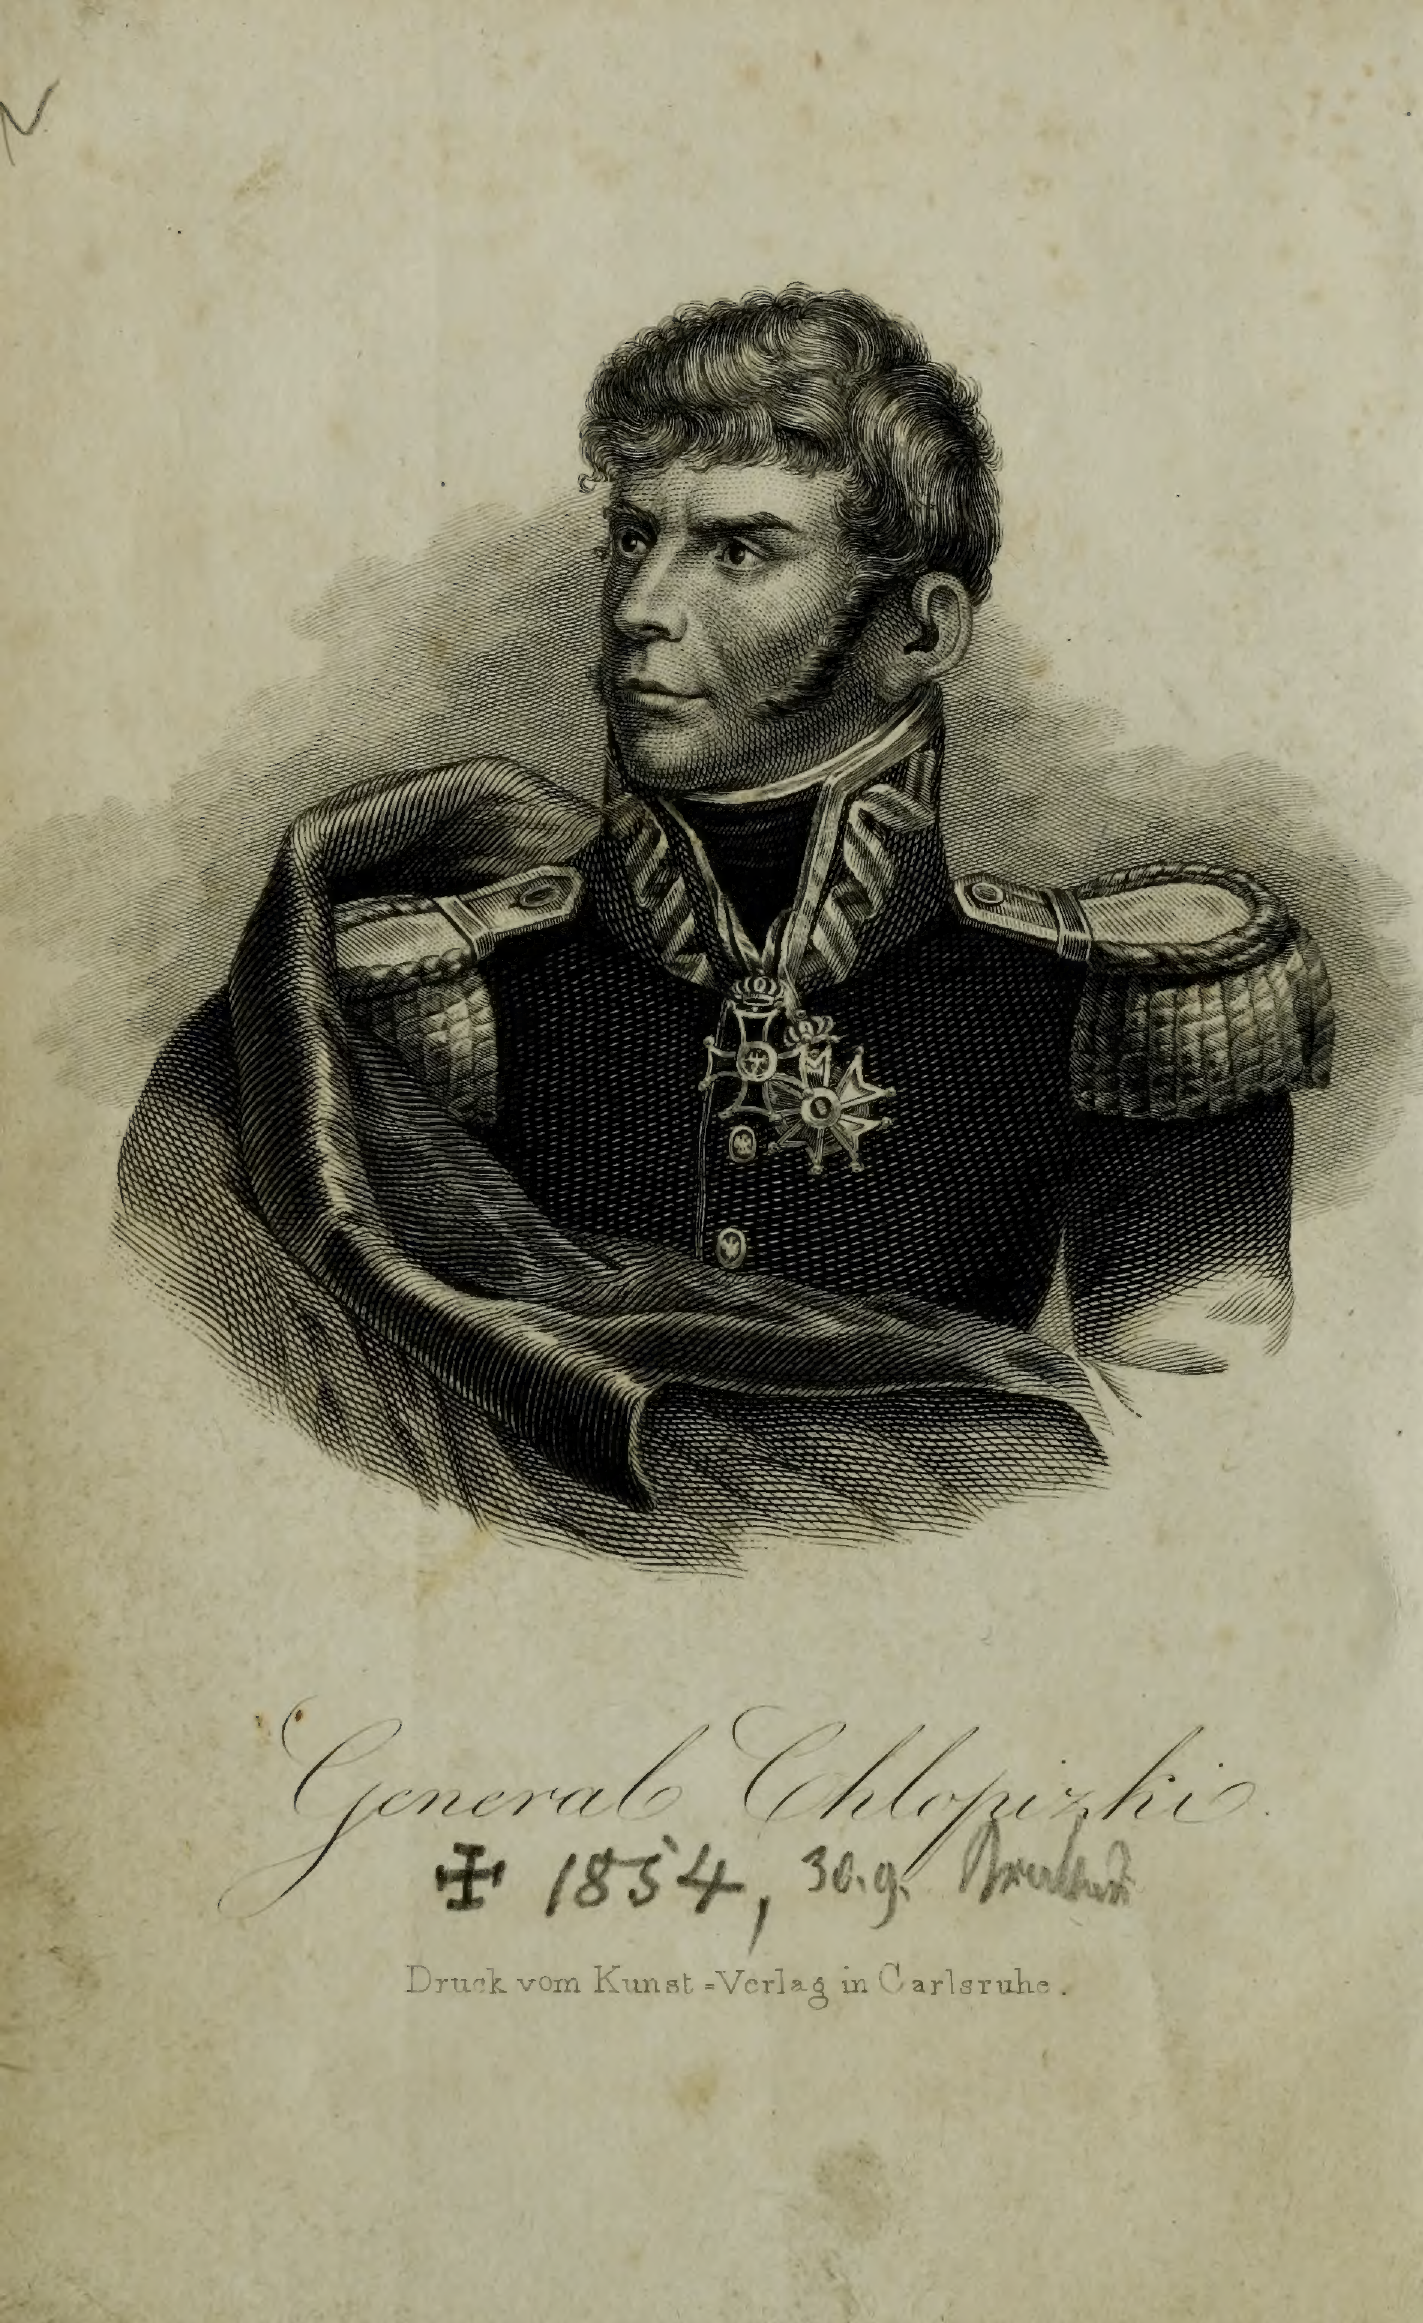 General Chlopizki.
✠ 1854, 30.9.
Druck vom Kunst=Verlag in Carlsruhe.